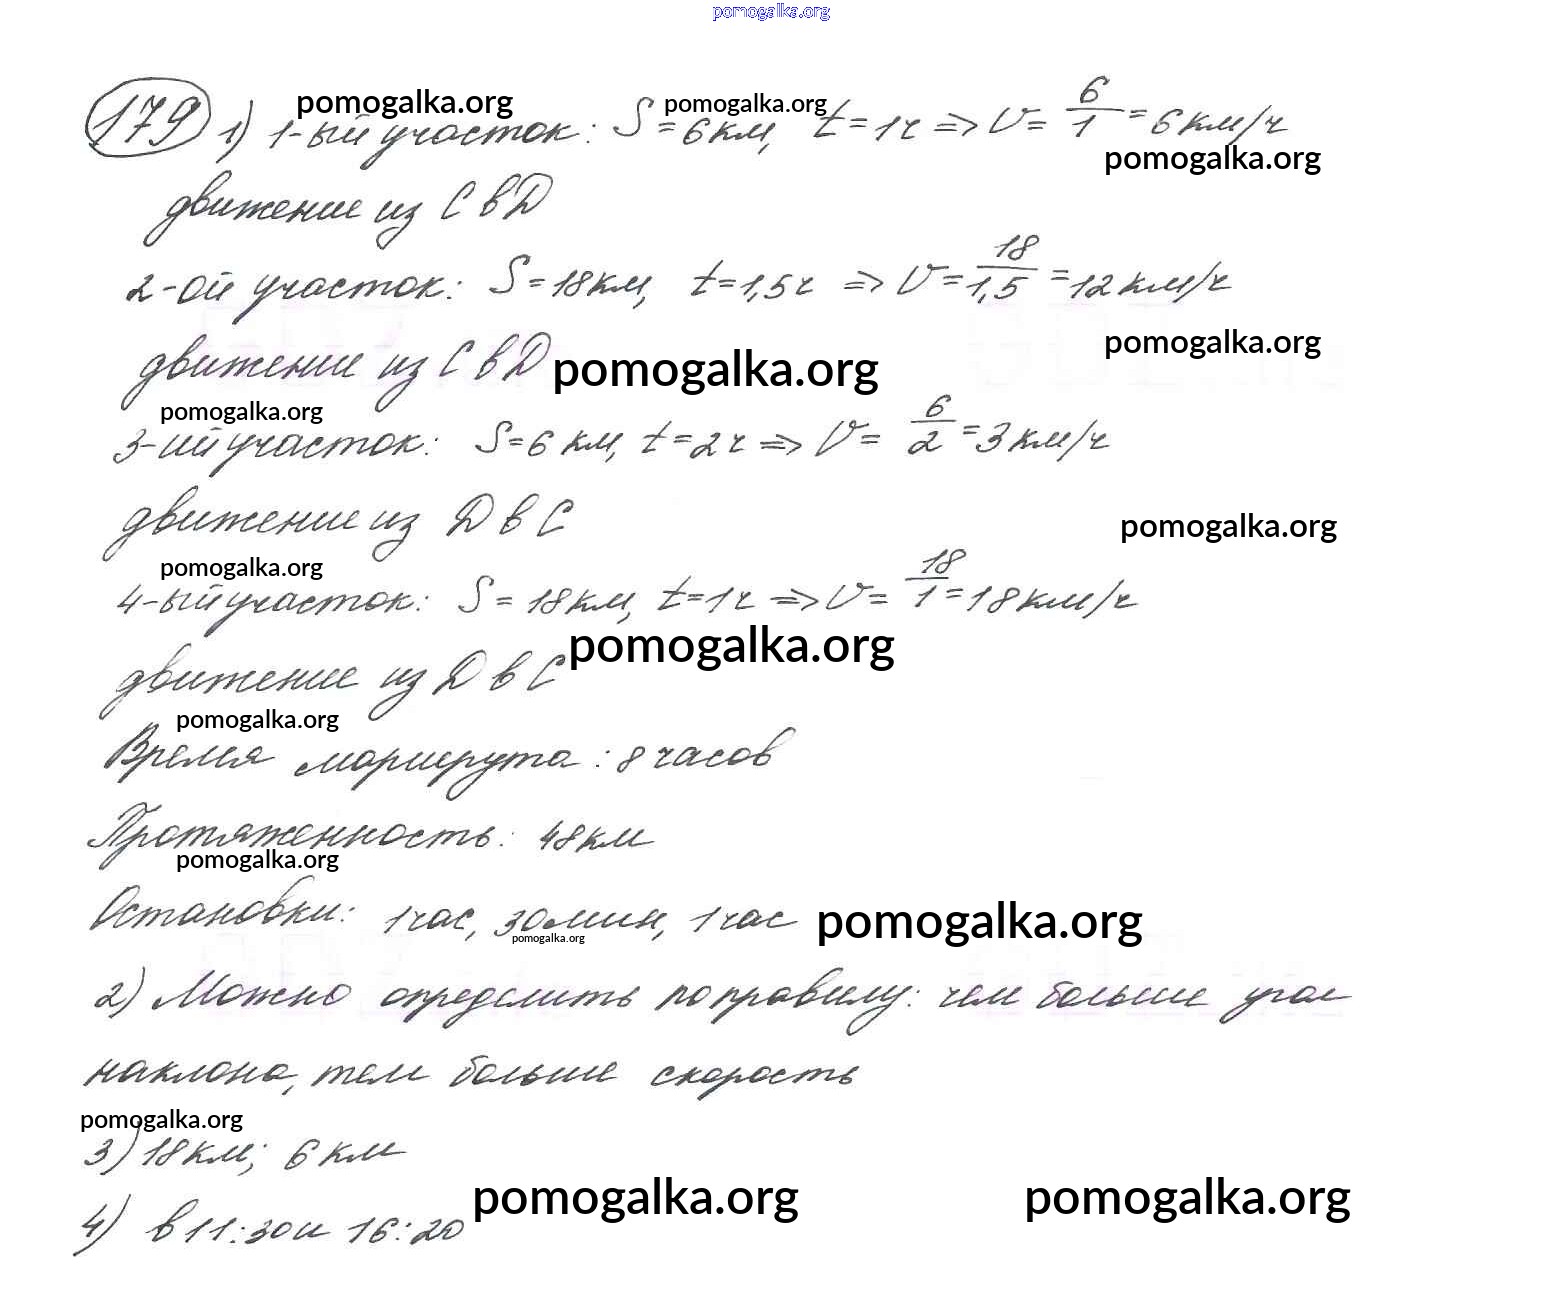 pomogalka.org
179 1) 1-ый участок: S = 6 км, t = 1 ч => V = 6/1 = 6 км/ч
pomogalka.org pomogalka.org
pomogalka.org
движение из C в D
2-ой участок: S = 18 км, t = 1,5 ч => V = 18/1,5 = 12 км/ч
pomogalka.org
движение из C в D pomogalka.org
pomogalka.org
3-ий участок: S = 6 км, t = 2 ч => V = 6/2 = 3 км/ч
движение из D в C
pomogalka.org
pomogalka.org
4-ый участок: S = 18 км, t = 1 ч => V = 18/1 = 18 км/ч
движение из D в C pomogalka.org
pomogalka.org
Время маршрута: 8 часов
Протяженность: 48 км
pomogalka.org
Остановки: 1 час, 30 мин, 1 час pomogalka.org
pomogalka.org
2) Можно определить по правилу: чем больше угол
наклона, тем больше скорость
pomogalka.org
3) 18 км; 6 км
4) в 11:30 и 16:20 pomogalka.org pomogalka.org